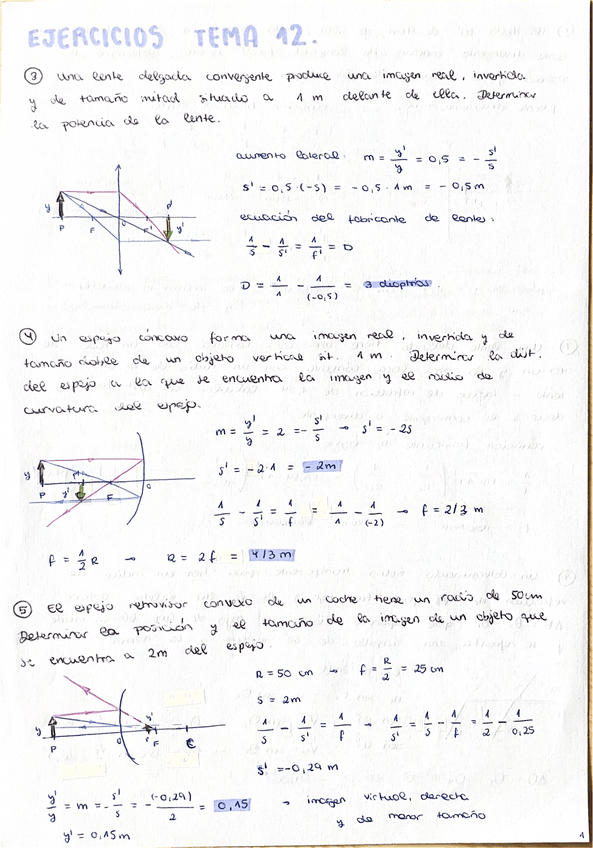 EJERCICIOS TEMA 12.
③ Una lente delgada convergente produce una imagen real, invertida
y de tamaño mitad situado a 1 m delante de ella. Determinar
la potencia de la lente.
aumento lateral. m = y'/y = 0,5 = - s'/s
s' = 0,5 · (-s) = - 0,5 · 1 m = - 0,5 m
ecuación del fabricante de lentes:
1/s - 1/s' = 1/f' = D
D = 1/1 - 1/(-0,5) = 3 dioptrías.
y P F C F' P' y'
④ Un espejo cóncavo forma una imagen real, invertida y de
tamaño doble de un objeto vertical sit. 1 m. Determinar la dist.
del espejo a la que se encuentra la imagen y el radio de
curvatura del espejo.
m = y'/y = 2 = - s'/s → s' = - 2s
s' = - 2 · 1 = - 2m
1/s - 1/s' = 1/f = 1/1 - 1/(-2) → f = 2/3 m
y P P' y' F O
f = 1/2 R → R = 2f = 4/3 m
⑤ El espejo retrovisor convexo de un coche tiene un radio de 50cm
Determinar la posición y el tamaño de la imagen de un objeto que
se encuentra a 2m del espejo.
R = 50 cm → f = R/2 = 25 cm
s = 2m
1/s - 1/s' = 1/f → 1/s' = 1/s - 1/f = 1/2 - 1/0,25
s' = -0,29 m
y P O y' F C
y'/y = m = - s'/s = -(-0,29)/2 = 0,15 → imagen virtual, derecha
y de menor tamaño
y' = 0,15m
1